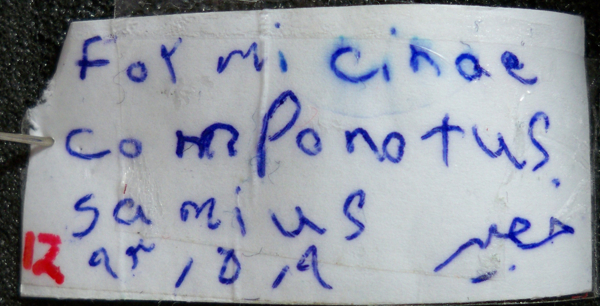 Formicinae
Componotus
samius
12